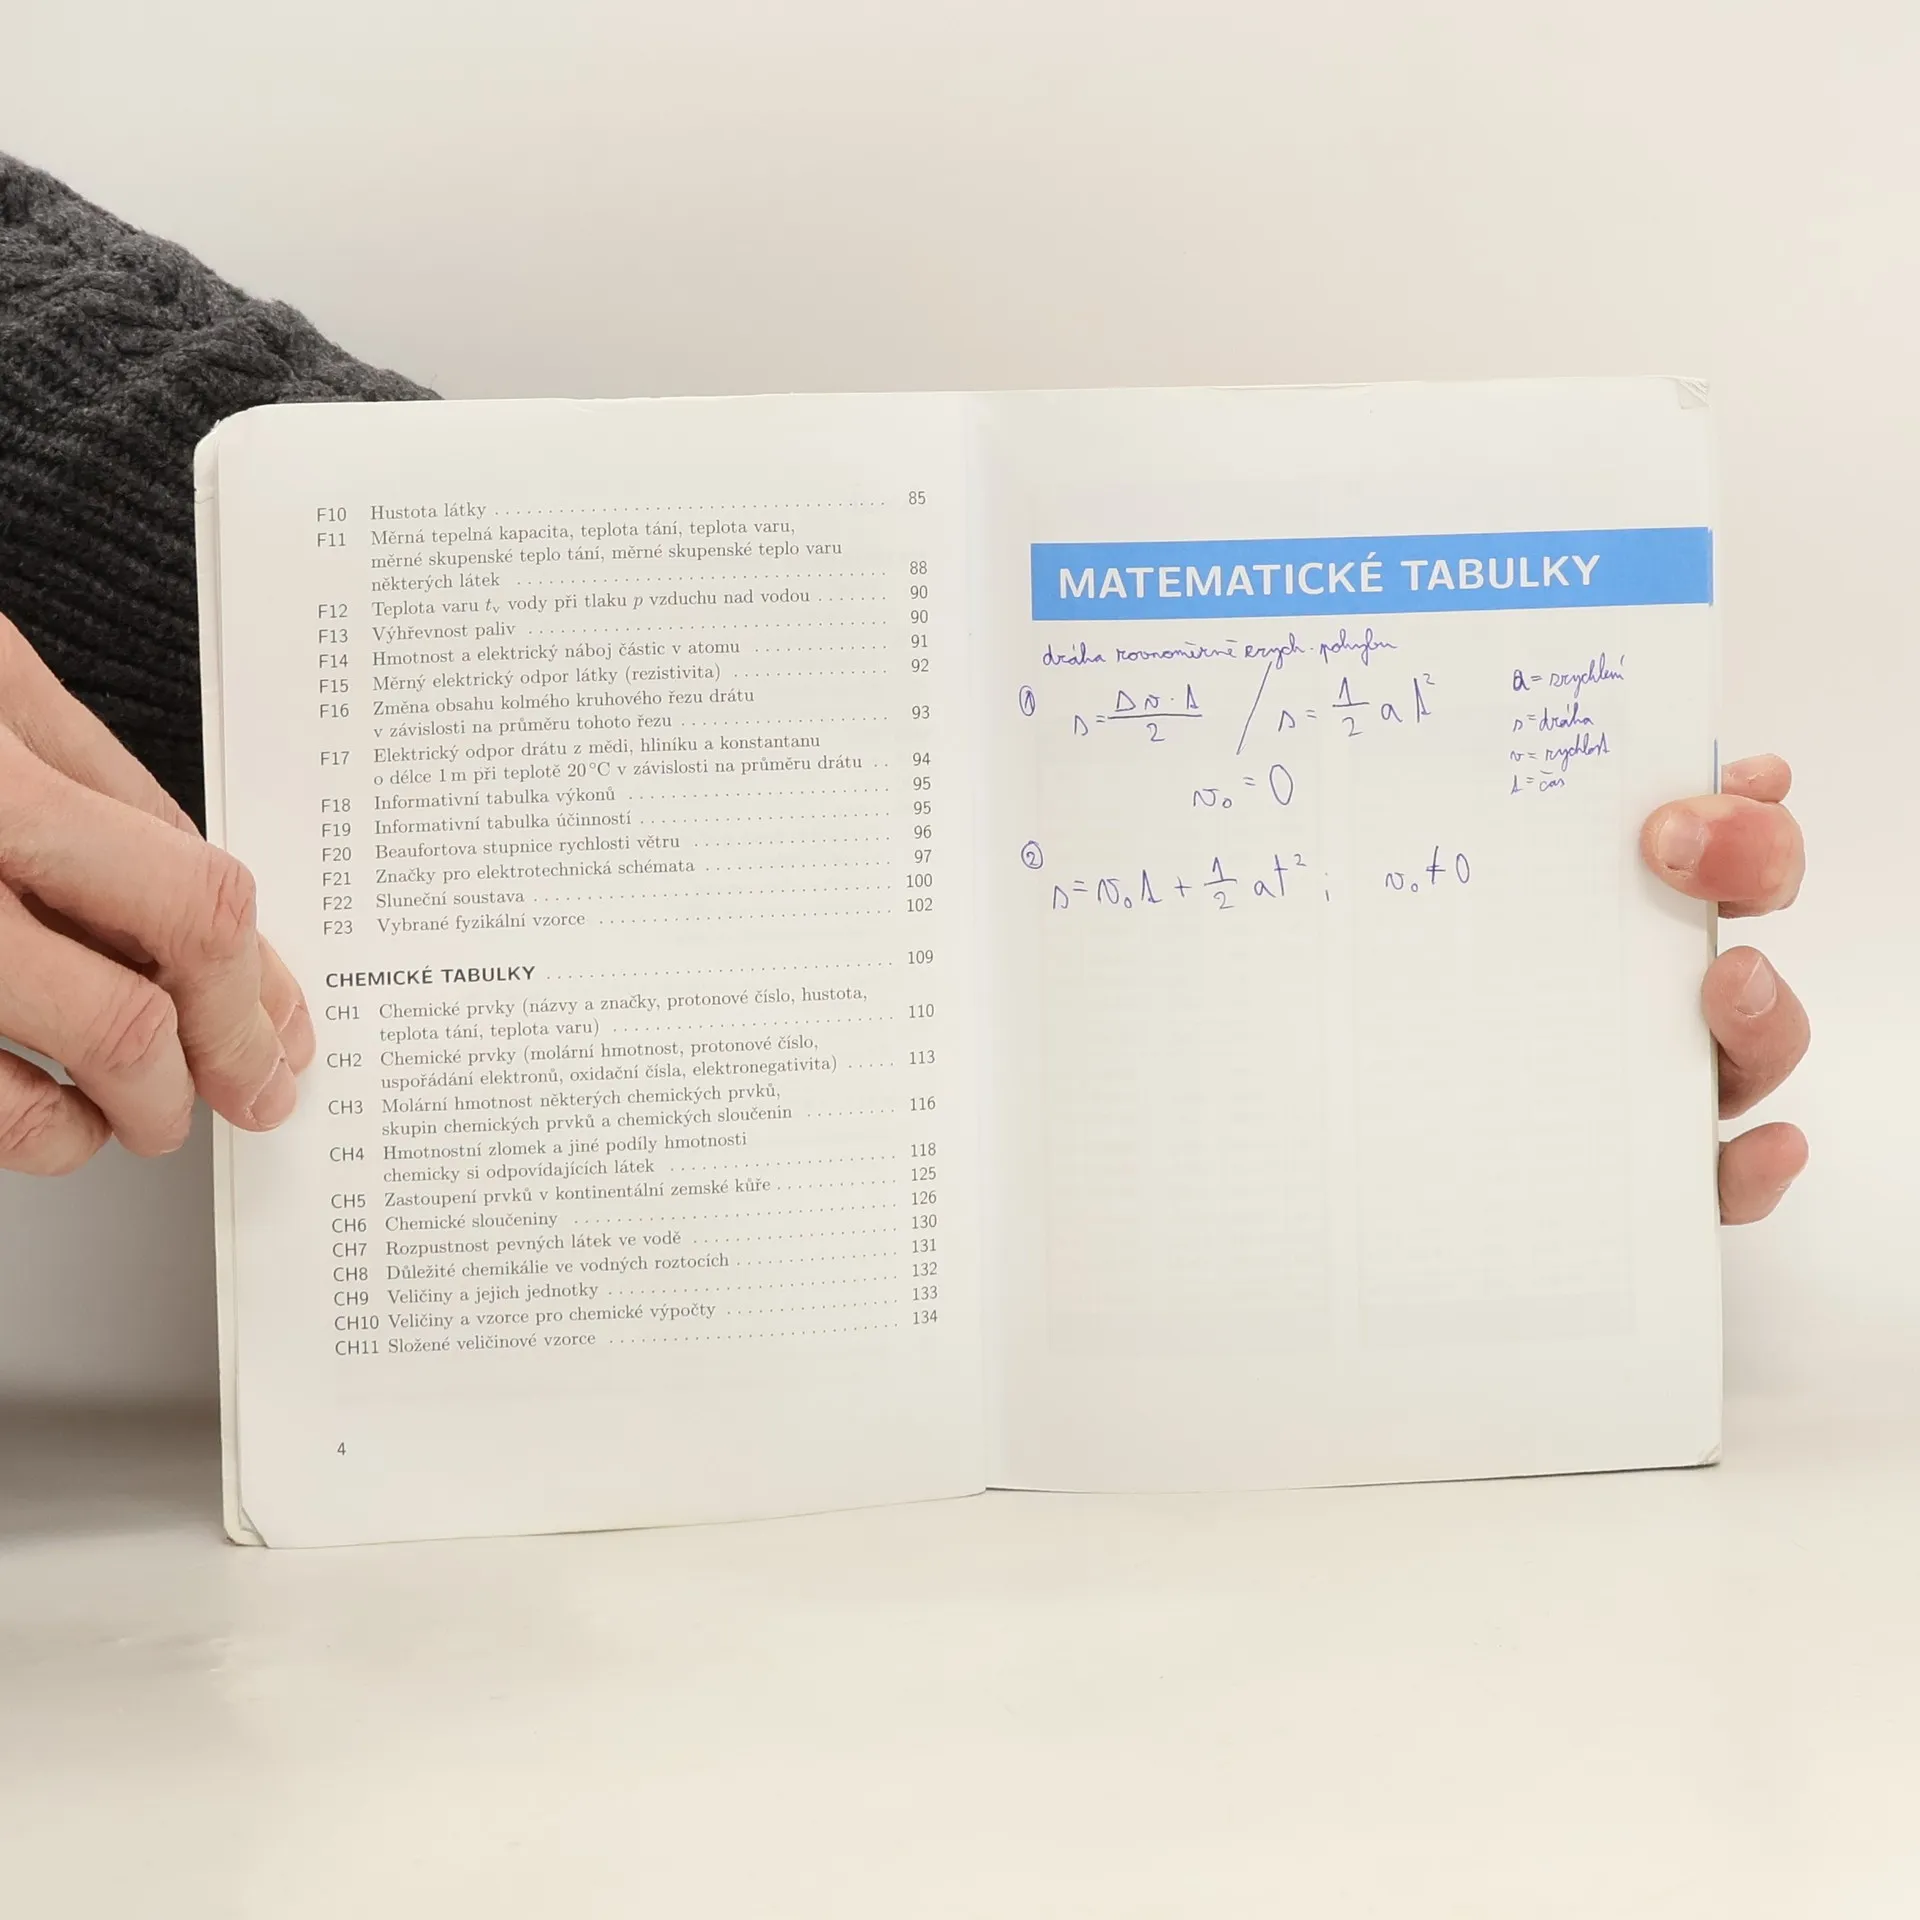 F10 Hustota látky 85
F11 Měrná tepelná kapacita, teplota tání, teplota varu,
měrné skupenské teplo tání, měrné skupenské teplo varu
některých látek 88
F12 Teplota varu tᵥ vody při tlaku p vzduchu nad vodou 90
F13 Výhřevnost paliv 90
F14 Hmotnost a elektrický náboj částic v atomu 91
F15 Měrný elektrický odpor látky (rezistivita) 92
F16 Změna obsahu kolmého kruhového řezu drátu
v závislosti na průměru tohoto řezu 93
F17 Elektrický odpor drátu z mědi, hliníku a konstantanu
o délce 1 m při teplotě 20 °C v závislosti na průměru drátu 94
F18 Informativní tabulka výkonů 95
F19 Informativní tabulka účinností 95
F20 Beaufortova stupnice rychlosti větru 96
F21 Značky pro elektrotechnická schémata 97
F22 Sluneční soustava 100
F23 Vybrané fyzikální vzorce 102
CHEMICKÉ TABULKY 109
CH1 Chemické prvky (názvy a značky, protonové číslo, hustota,
teplota tání, teplota varu) 110
CH2 Chemické prvky (molární hmotnost, protonové číslo,
uspořádání elektronů, oxidační čísla, elektronegativita) 113
CH3 Molární hmotnost některých chemických prvků,
skupin chemických prvků a chemických sloučenin 116
CH4 Hmotnostní zlomek a jiné podíly hmotnosti
chemicky si odpovídajících látek 118
CH5 Zastoupení prvků v kontinentální zemské kůře 125
CH6 Chemické sloučeniny 126
CH7 Rozpustnost pevných látek ve vodě 130
CH8 Důležité chemikálie ve vodných roztocích 131
CH9 Veličiny a jejich jednotky 132
CH10 Veličiny a vzorce pro chemické výpočty 133
CH11 Složené veličinové vzorce 134
4
MATEMATICKÉ TABULKY
dráha rovnoměrně zrych. pohybu
① s = Δv·t / 2 / s = 1/2 at²
v₀ = 0
a = zrychlení
s = dráha
v = rychlost
t = čas
② s = v₀t + 1/2 at² ; v₀ ≠ 0